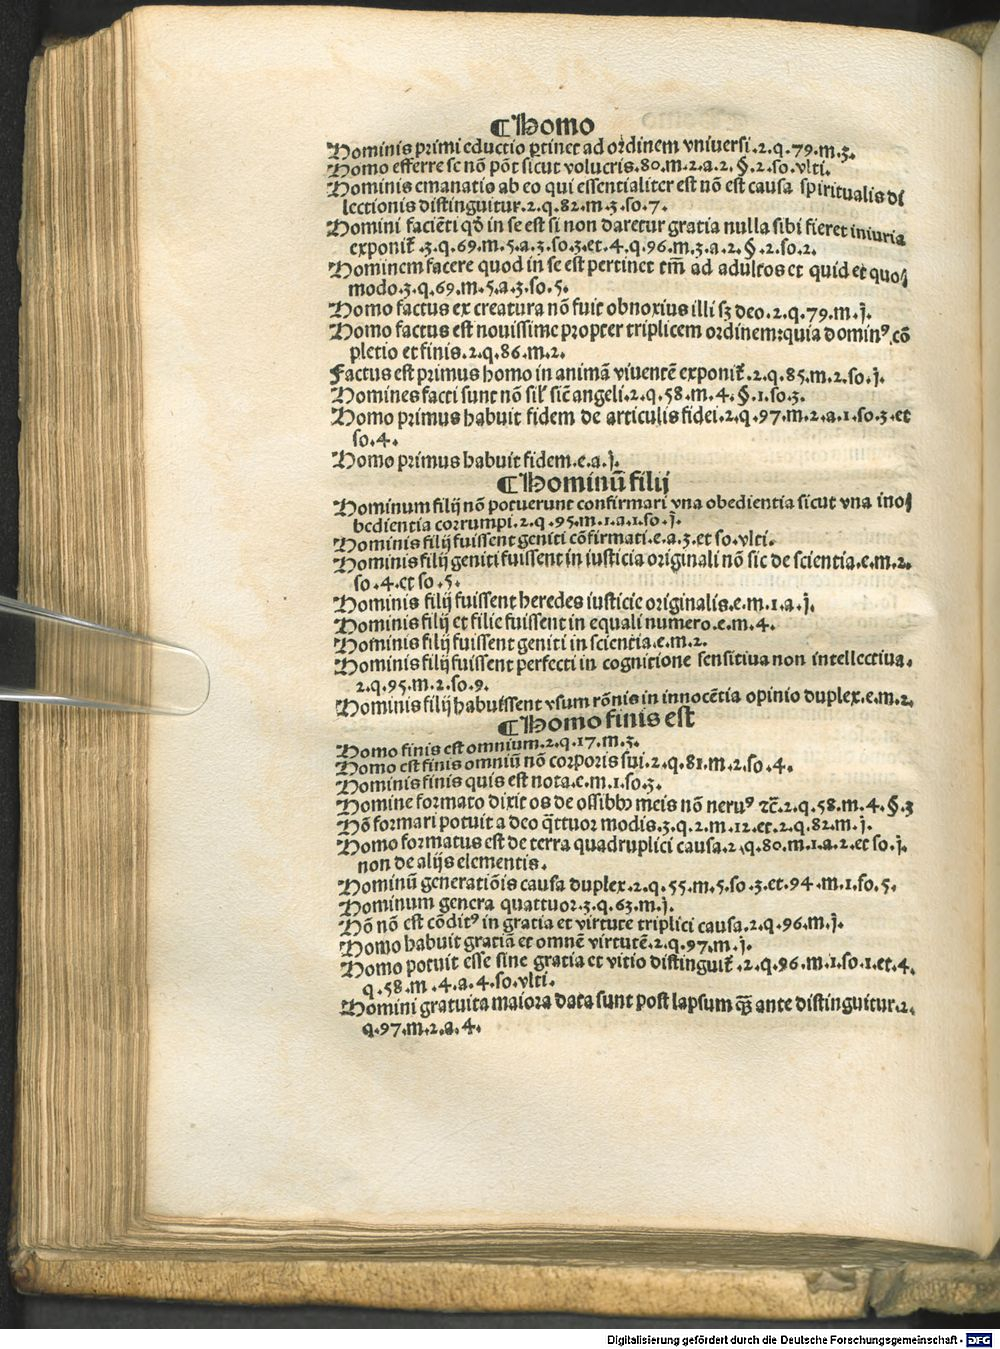 ¶Homo
Hominis primi eductio ꝑtinet ad ordinem vniuersi.2.q.79.m.3.
Homo efferre se nō pōt sicut volucris.80.m.2.a.2.§.2.so.vlti.
Hominis emanatio ab eo qui essentialiter est nō est causa spiritualis di
lectionis distinguitur.2.q.82.m.3.so.7.
Homini faciēti qđ in se est si non daretur gratia nulla sibi fieret iniuria
exponit᷑.3.q.69.m.5.a.3.so.3.et.4.q.96.m.3.a.2.§.2.so.2.
Hominem facere quod in se est pertinet tm̄ ad adultos et quid et quo/
modo.3.q.69.m.5.a.3.so.5.
Homo factus ex creatura nō fuit obnoxius illi sꝫ deo.2.q.79.m.j.
Homo factus est nouissime propter triplicem ordinem:quia dominꝰ,cō
pletio et finis.2.q.86.m.2.
Factus est primus homo in animā viuentē exponit᷑.2.q.85.m.2.so.j.
Homines facti sunt nō sil' sic̄ angeli.2.q.58.m.4.§.1.so.3.
Homo primus habuit fidem de articulis fidei.2.q.97.m.2.a.1.so.3.et
so.4.
Homo primus habuit fidem.e.a.j.
¶Hominū filij
Hominum filij nō potuerunt confirmari vna obedientia sicut vna ino/
bedientia corrumpi.2.q.95.m.1.a.1.so.j.
Hominis filij fuissent geniti cōfirmati.e.a.3.et so.vlti.
Hominis filij geniti fuissent in iusticia originali nō sic de scientia.e.m.2.
so.4.et so.5.
Hominis filij fuissent heredes iusticie originalis.e.m.1.a.j.
Hominis filij et filie fuissent in equali numero.e.m.4.
Hominis filij fuissent geniti in scientia.e.m.2.
Hominis filij fuissent perfecti in cognitione sensitiua non intellectiua.
2.q.95.m.2.so.9.
Hominis filij habuissent vsum rōnis in innocētia opinio duplex.e.m.2.
¶Homo finis est
Homo finis est omnium.2.q.17.m.3.
Homo est finis omniū nō corporis sui.2.q.81.m.2.so.4.
Hominis finis quis est nota.e.m.1.so.3.
Homine formato dixit os de ossibꝰ meis nō neruꝰ ⁊c̄.2.q.58.m.4.§.3
Hō formari potuit a deo q̄ttuor modis.3.q.2.m.12.et.2.q.82.m.j.
Homo formatus est de terra quadruplici causa.2.q.80.m.1.a.2.et so.j.
non de alijs elementis.
Hominū generatiōis causa duplex.2.q.55.m.5.so.3.et.94.m.1.so.5.
Hominum genera quattuor.3.q.63.m.j.
Hō nō est cōditꝰ in gratia et virtute triplici causa.2.q.96.m.j.
Homo habuit gratiā et omnē virtutē.2.q.97.m.j.
Homo potuit esse sine gratia et vitio distinguit᷑.2.q.96.m.1.so.1.et.4.
q.58.m.4.a.4.so.vlti.
Homini gratuita maiora data sunt post lapsum qꝫ̄ ante distinguitur.2.
q.97.m.2.a.4.
Digitalisierung gefördert durch die Deutsche Forschungsgemeinschaft - DFG